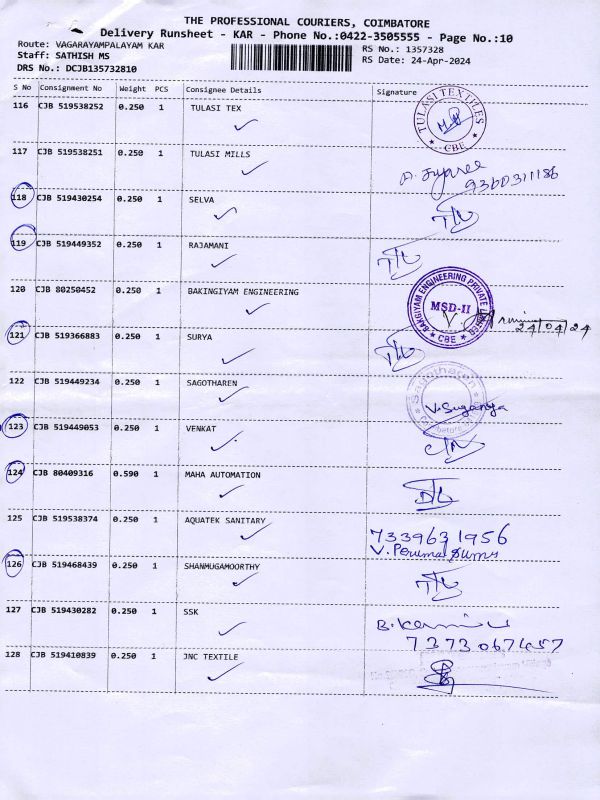 THE PROFESSIONAL COURIERS, COIMBATORE
Delivery Runsheet - KAR - Phone No.:0422-3505555 - Page No.:10
Route: VAGARAYAMPALAYAM KAR
RS No.: 1357328
Staff: SATHISH MS
RS Date: 24-Apr-2024
DRS No.: DCJB135732810
S No Consignment No Weight PCS Consignee Details Signature
116 CJB 519538252 0.250 1 TULASI TEX
TULASI TEXTILES
CBE
117 CJB 519538251 0.250 1 TULASI MILLS
9360311186
118 CJB 519430254 0.250 1 SELVA
119 CJB 519449352 0.250 1 RAJAMANI
120 CJB 80250452 0.250 1 BAKINGIYAM ENGINEERING
BAKGIYAM ENGINEERING PRIVATE LIMITED
MSD-II
CBE
24/04/24
121 CJB 519366883 0.250 1 SURYA
122 CJB 519449234 0.250 1 SAGOTHAREN
Sagotharen
V. Suganya
123 CJB 519449053 0.250 1 VENKAT
124 CJB 80409316 0.590 1 MAHA AUTOMATION
125 CJB 519538374 0.250 1 AQUATEK SANITARY
7339631956
V. Perumal
126 CJB 519468439 0.250 1 SHANMUGAMOORTHY
127 CJB 519430282 0.250 1 SSK
B.
7373067657
128 CJB 519410839 0.250 1 JNC TEXTILE